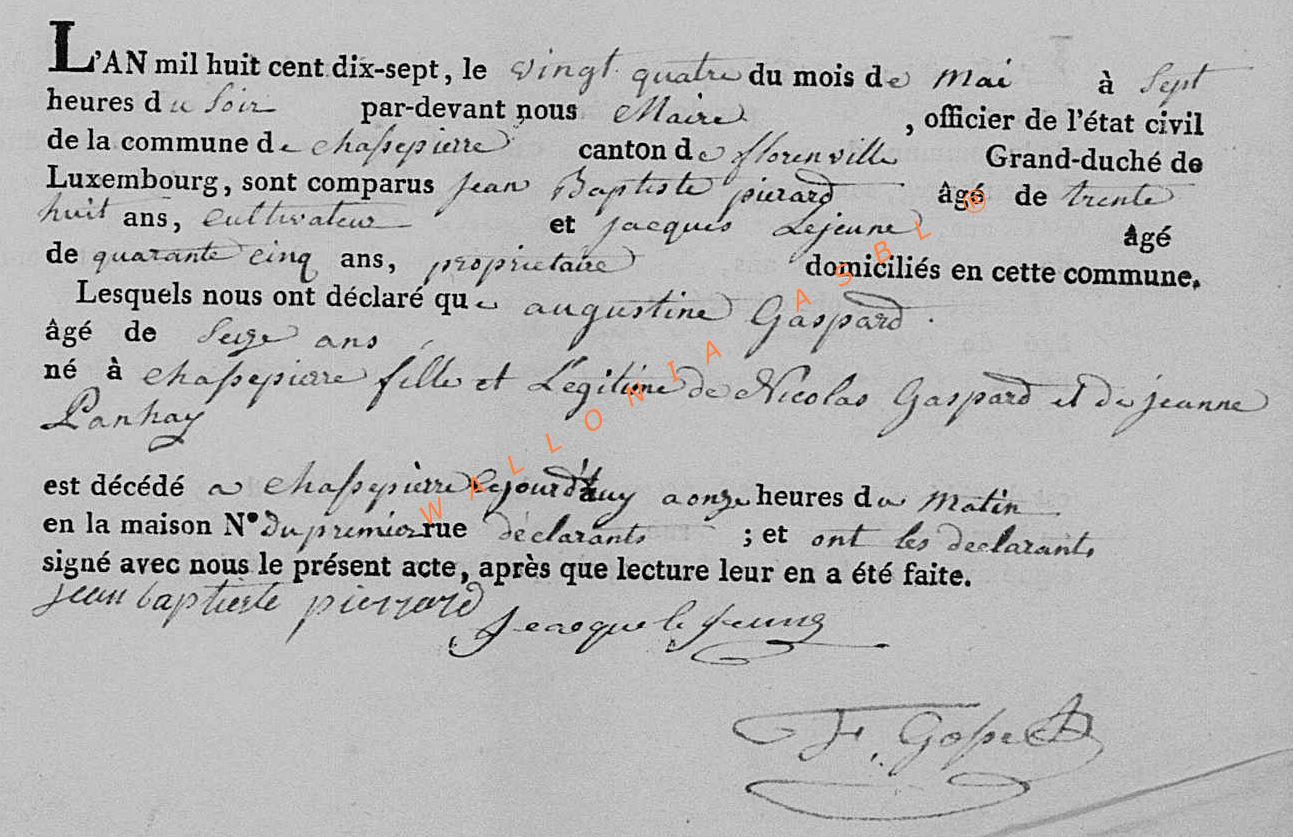 L'AN mil huit cent dix-sept, le vingt quatre du mois de mai à Sept
heures du Soir par-devant nous Maire , officier de l'état civil
de la commune de chassepierre canton de florenville Grand-duché de
Luxembourg, sont comparus jean Baptiste pierard âgé de trente
huit ans, cultivateur et jacques Lejeune âgé
de quarante cinq ans, propriétaire domiciliés en cette commune.
Lesquels nous ont déclaré que augustine Gaspard
âgé de Seize ans
né à chassepierre fille et Légitime de Nicolas Gaspard et de jeanne
Panhay
est décédé a chassepierre cejourd'huy a onze heures du matin
en la maison N° du premier rue déclarants ; et ont les declarants
signé avec nous le présent acte, après que lecture leur en a été faite.
jean baptieste pierrard
Jacque le Jeune
F.
WALLONIA ASBL ®